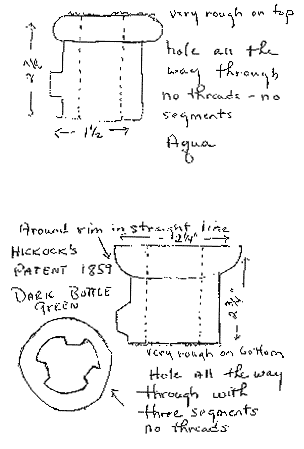 very rough on top
hole all the
way through
no threads - no
segments
Aqua
1 1/2
Around rim in straight line
HICKOCK'S
PATENT 1859
DARK BOTTLE
GREEN
2 1/4"
very rough on bottom
Hole all the way
through with
three segments
no threads